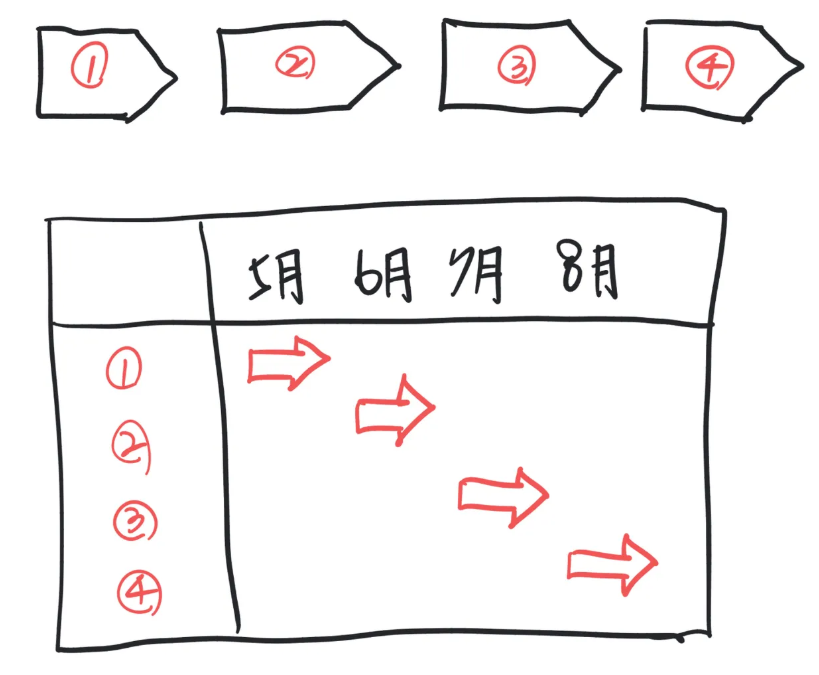 ① ② ③ ④
5月 6月 7月 8月
①
②
③
④